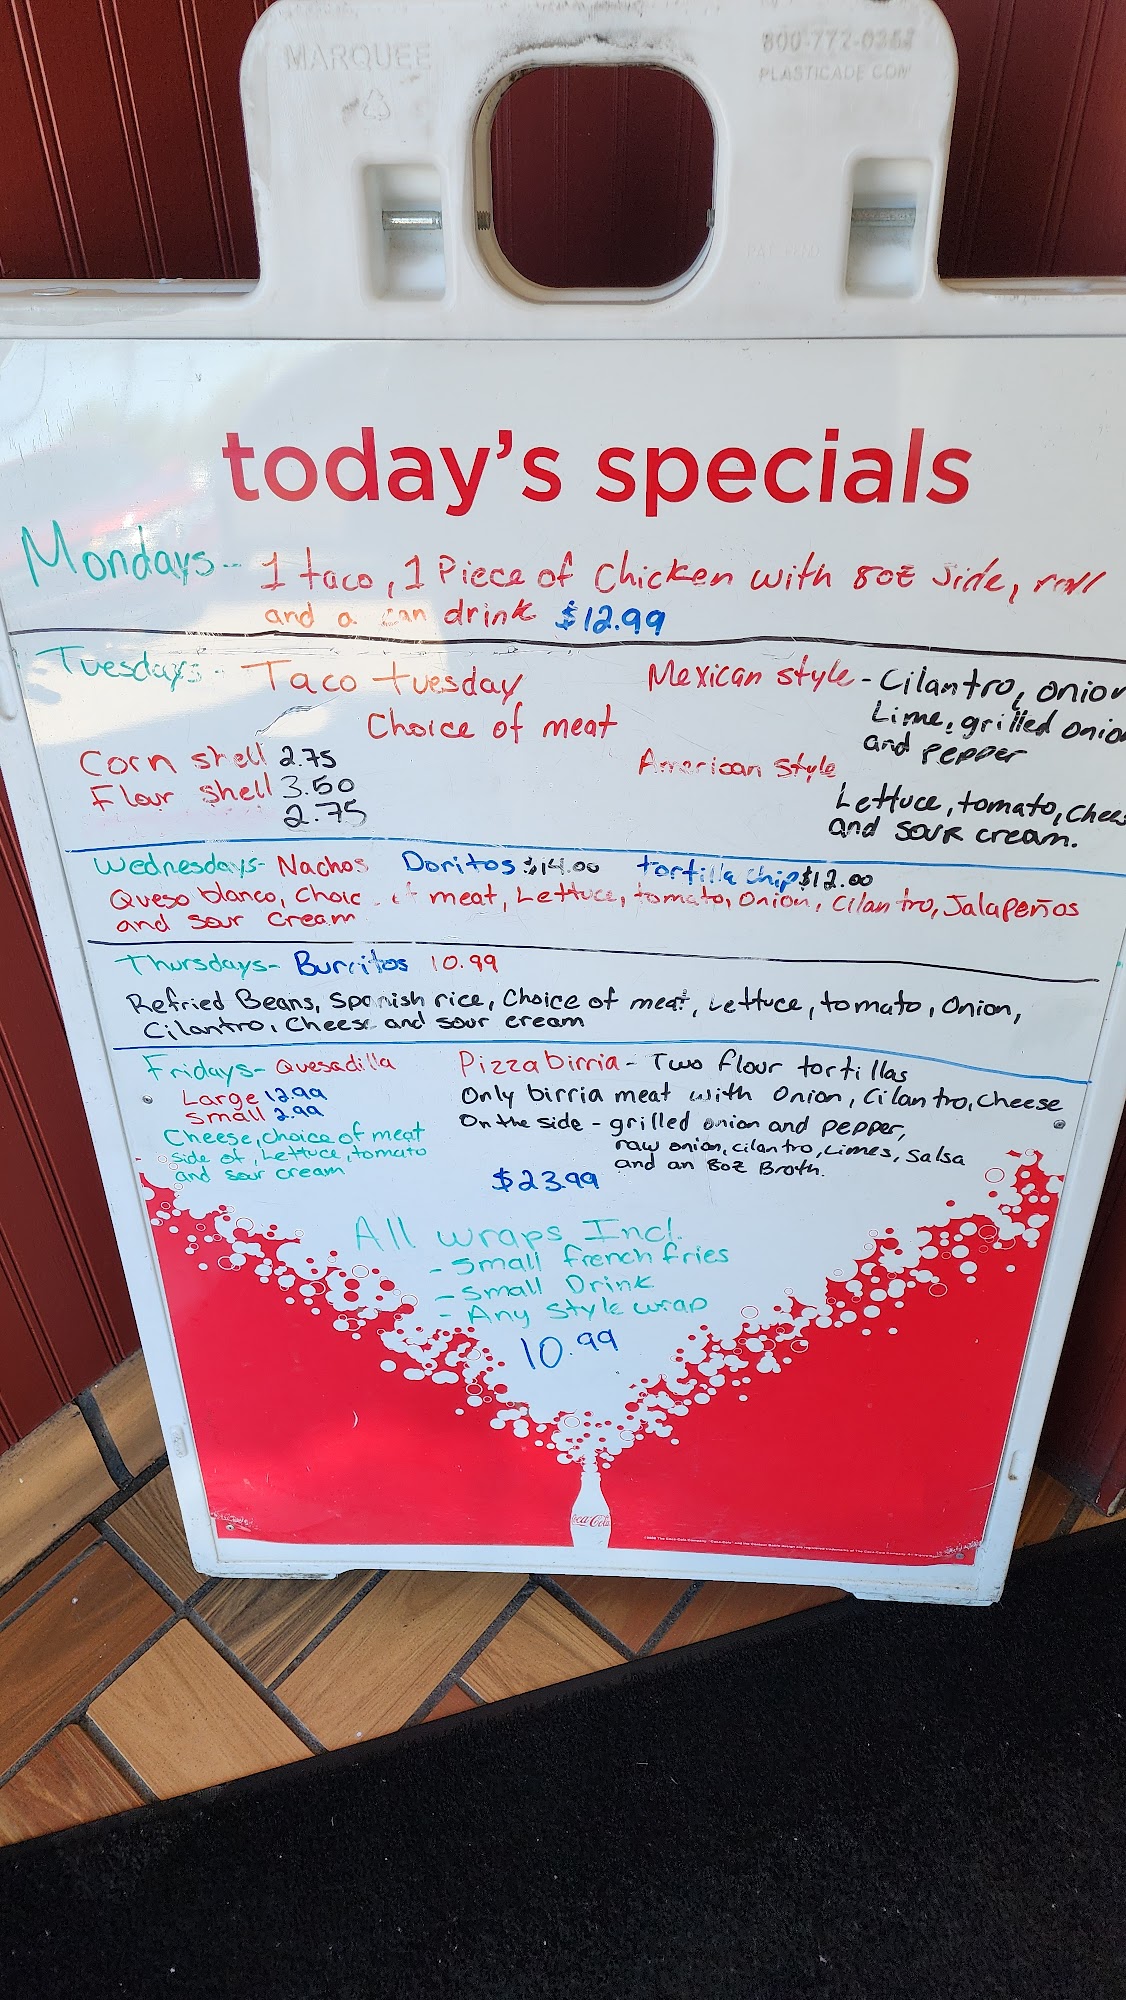 MARQUEE
PLASTICADE.COM
today's specials
Mondays- 1 taco, 1 Piece of Chicken with 8oz side, roll
and a can drink $12.99
Tuesdays- Taco tuesday
Choice of meat
Corn shell 2.75
Flour shell 3.50
2.75
Mexican style - Cilantro, onion
Lime, grilled onion
and pepper
American style
Lettuce, tomato, chees
and sour cream.
Wednesdays- Nachos Doritos $14.00 tortilla chip $12.00
Queso blanco, Choic of meat, Lettuce, tomato, Onion, Cilantro, Jalapeños
and sour cream
Thursdays- Burritos 10.99
Refried Beans, Spanish rice, Choice of meat, Lettuce, tomato, Onion,
Cilantro, Cheese and sour cream
Fridays- Quesadilla
Large 12.99
Small 2.99
Cheese, choice of meat
side of, Lettuce, tomato
and sour cream
Pizzabirria- Two flour tortillas
Only birria meat with Onion, Cilantro, Cheese
On the side - grilled onion and pepper,
raw onion, cilantro, Limes, Salsa
and an 8oz Broth.
$23.99
All wraps Incl.
- Small french fries
- Small Drink
- Any style wrap
10.99
Coca-Cola